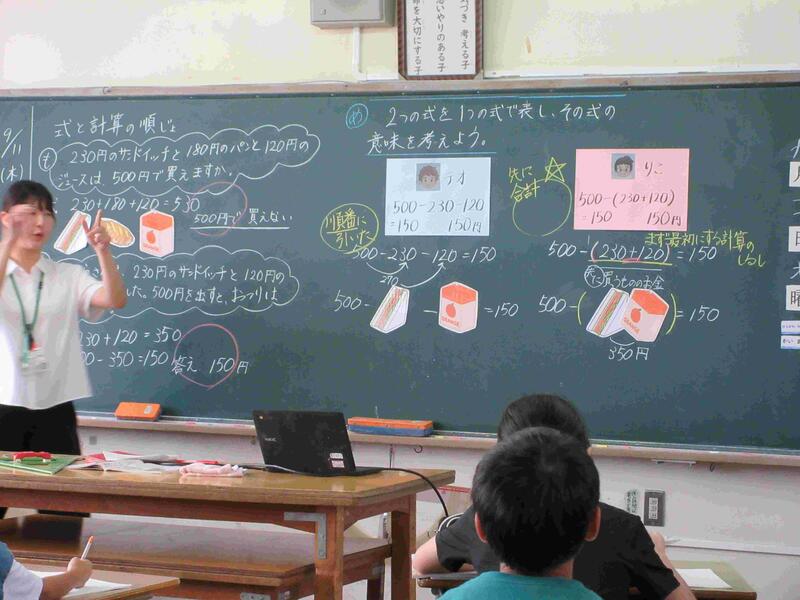 考える子
思いやりのある子
を大切にする子
9/11
(木)
式と計算の順じょ
も 230円のサンドイッチと180円のパンと120円の
ジュースは、500円で買えますか。
230+180+120=530
500円で買えない
230円のサンドイッチと120円の
した。500円を出すと、おつりは
230+120=350
-350=150
答え 150円
め 2つの式を1つの式で表し、その式の
意味を考えよう。
テオ
500-230-120
=150 150円
順番に
引いた
500-230-120=150
270
500- - =150
ORANGE
先に
合計
りこ
500-(230+120)
=150 150円
まず最初にする計算の
しるし
500-(230+120)=150
先に買うもののお金
500-( )=150
ORANGE
350円
月
日
曜